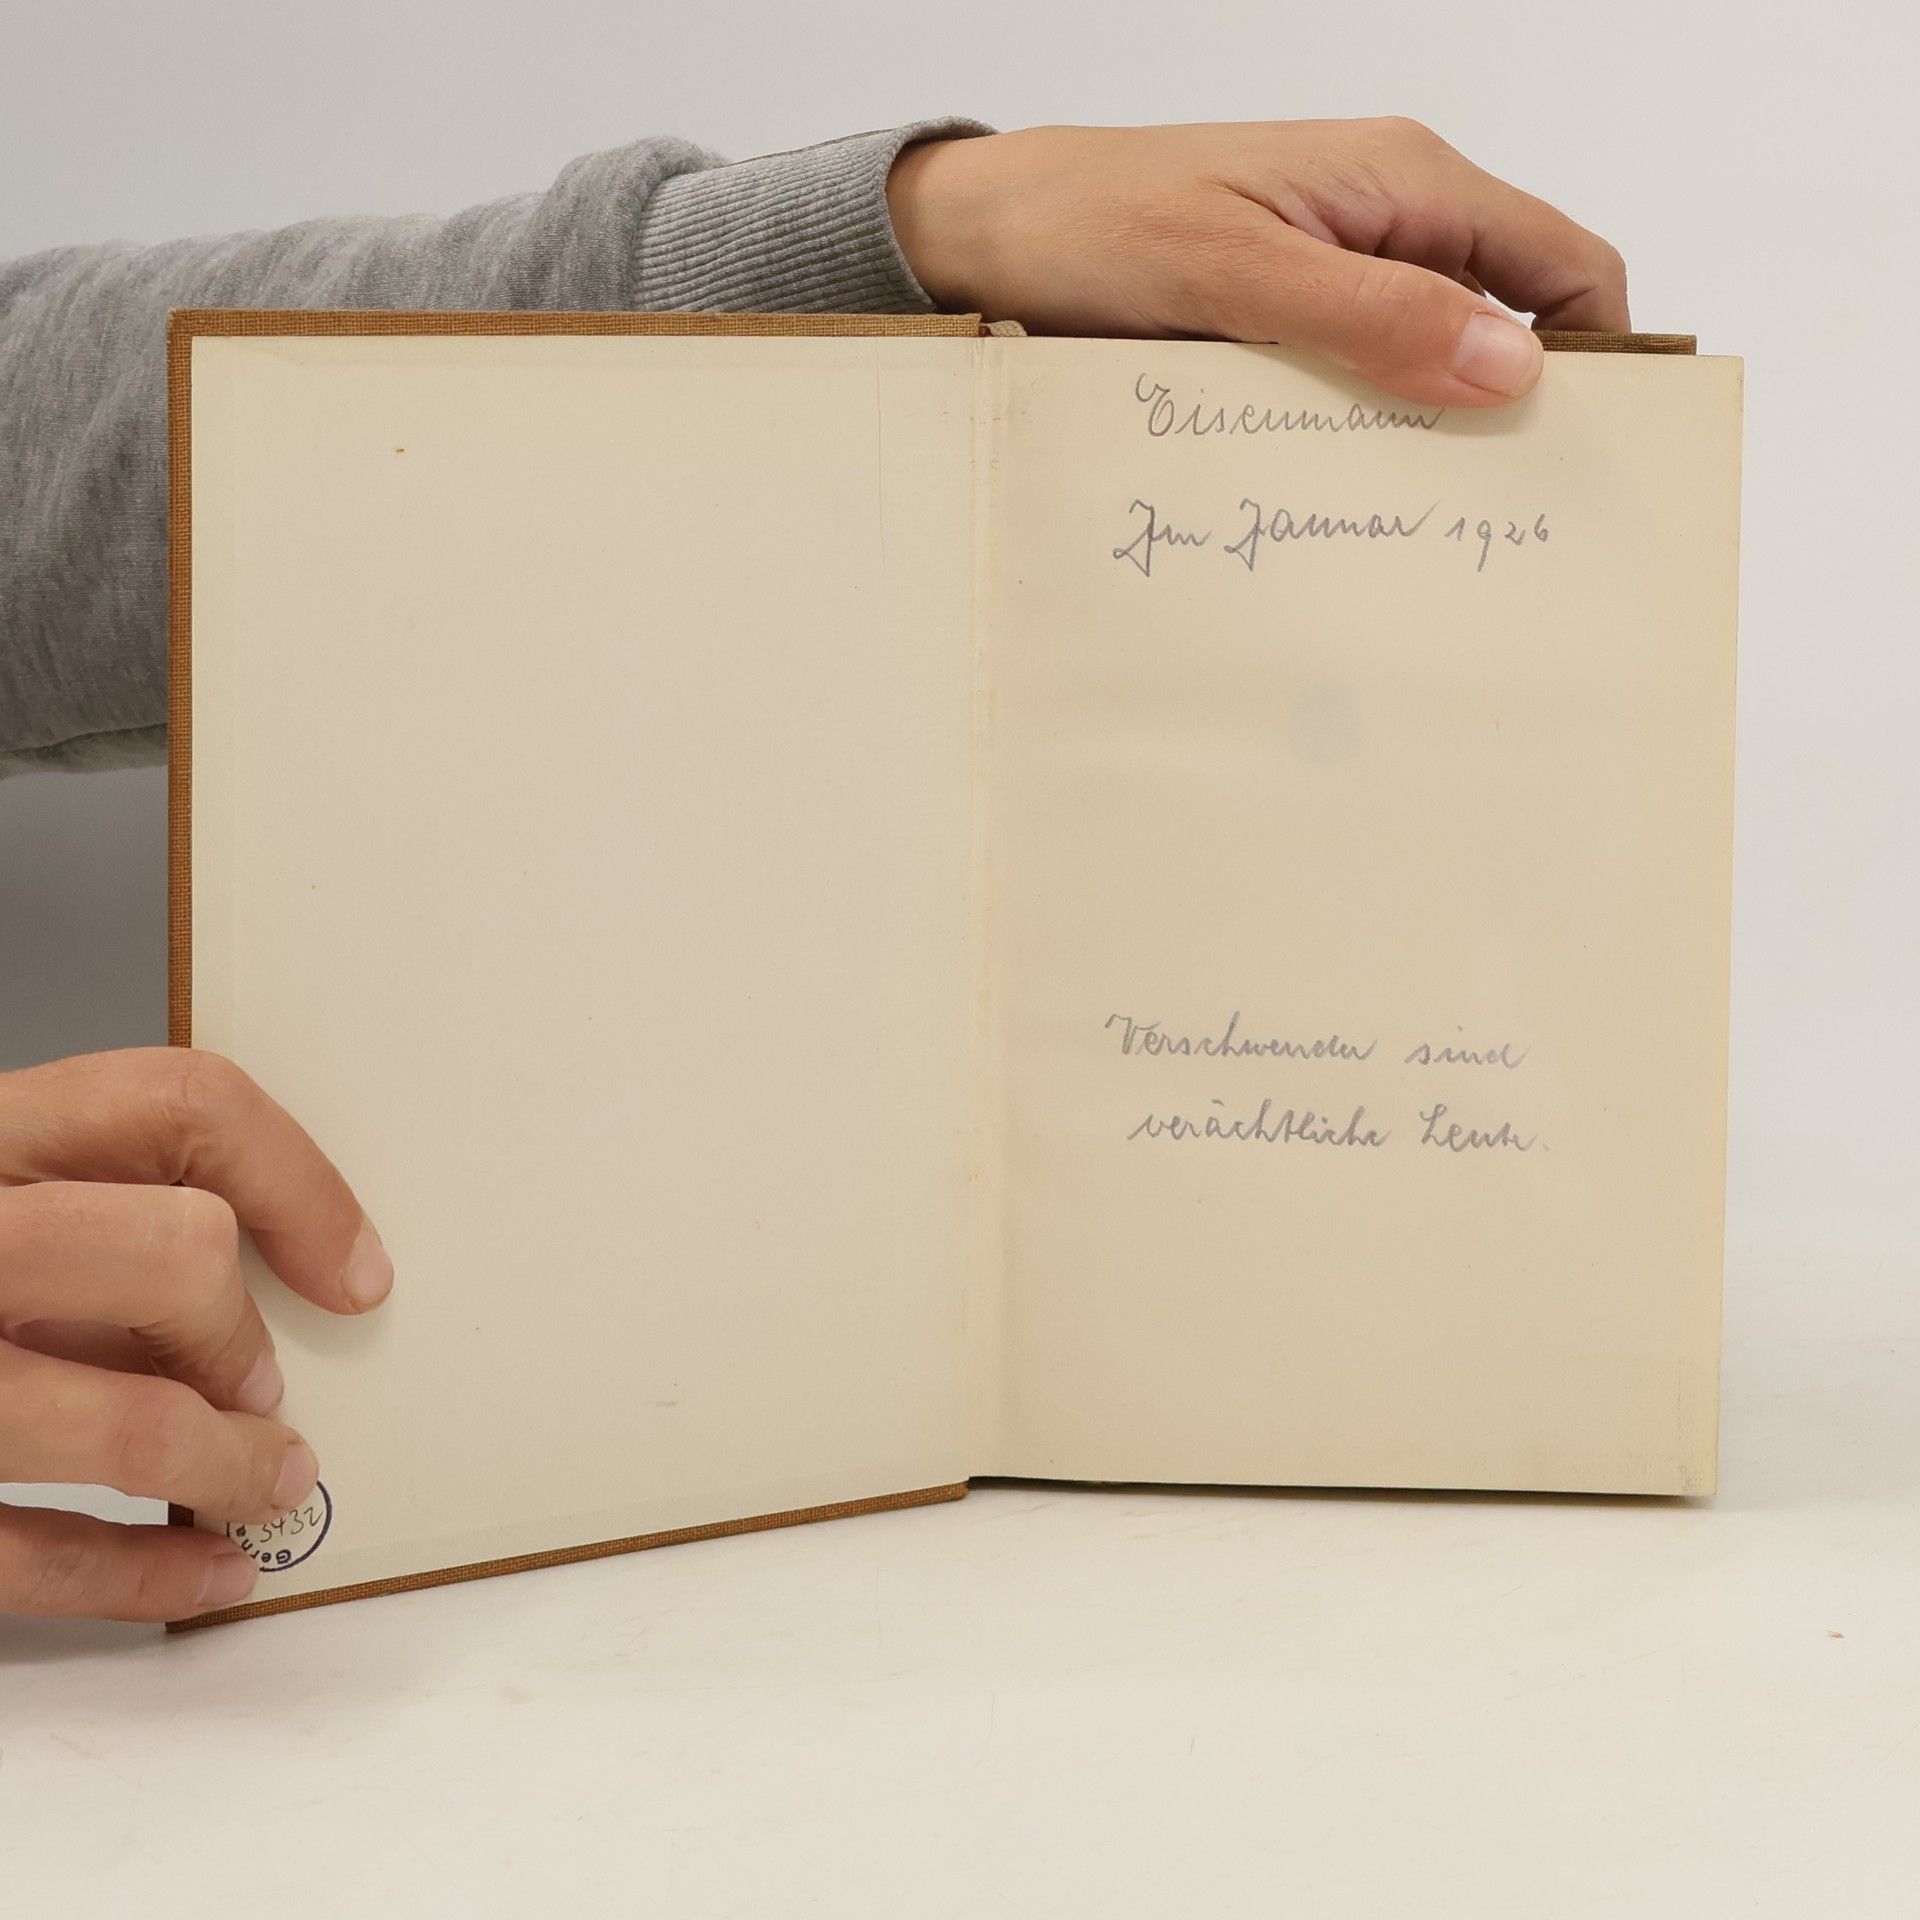 Eisenmann
Im Januar 1926
Verschwender sind
verächtliche Leute.
5432
Gern